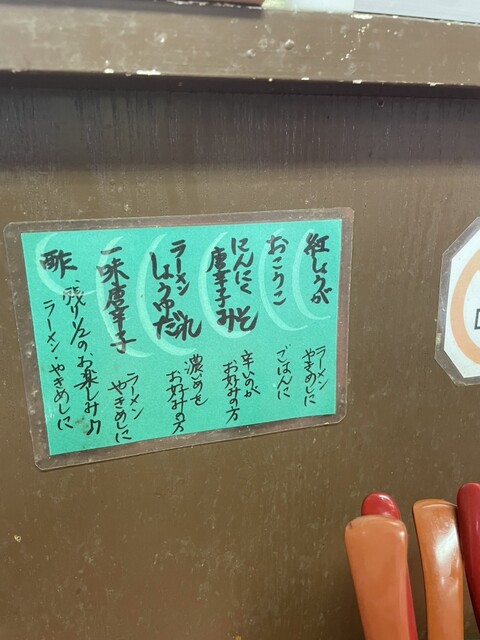 紅しょうが
ラーメン
やきめしに
おこうこ
ごはんに
にんにく
唐辛子みそ
辛いのが
お好みの方
ラーメン
しょうゆだれ
濃いめを
お好みの方
一味唐辛子
ラーメン
やきめしに
酢
残り1/2のお楽しみ♪
ラーメン・やきめしに